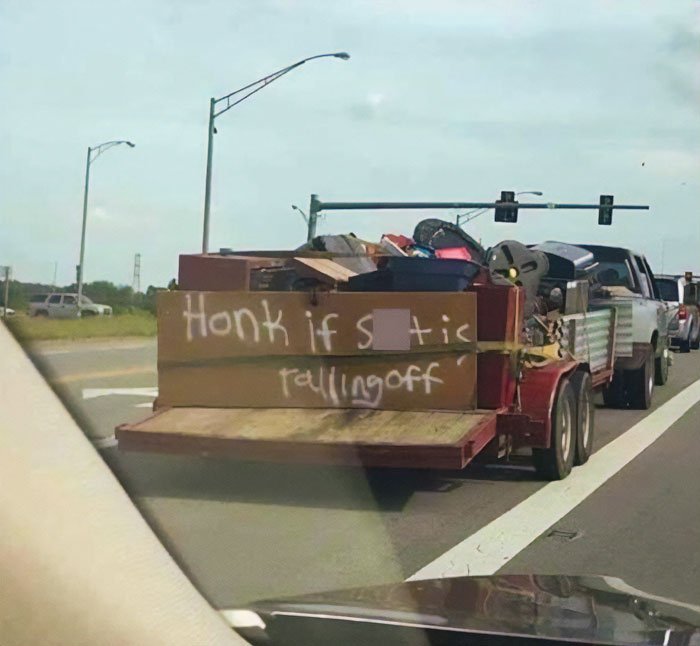 Honk if s t is
falling off